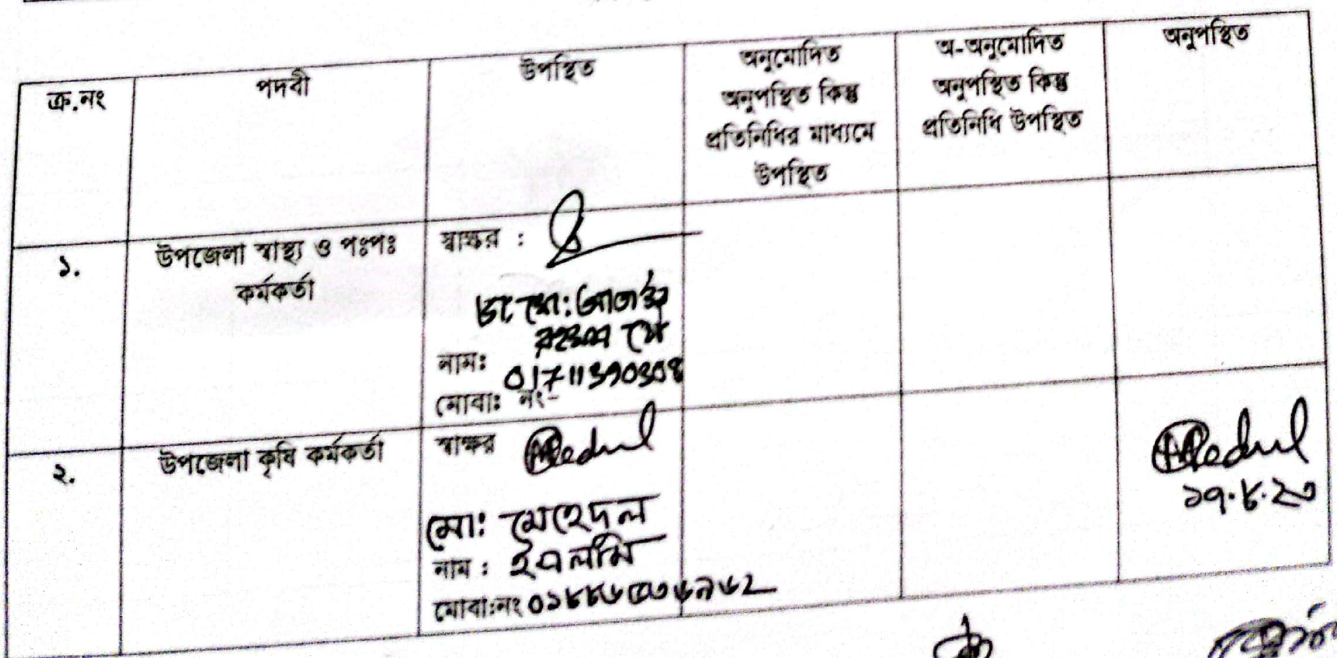 ক্র.নং পদবী উপস্থিত অনুমোদিত অনুপস্থিত কিন্তু প্রতিনিধির মাধ্যমে উপস্থিত অ-অনুমোদিত অনুপস্থিত কিন্তু প্রতিনিধি উপস্থিত অনুপস্থিত
১. উপজেলা স্বাস্থ্য ও পঃপঃ কর্মকর্তা
স্বাক্ষর :
ডা: মো:
নাম:
01711390308
মোবা: নং-
২. উপজেলা কৃষি কর্মকর্তা
স্বাক্ষর Medul
মো: মেহেদুল
নাম : ইসলাম
মোবা:নং
Medul
১৭.৮.২৩